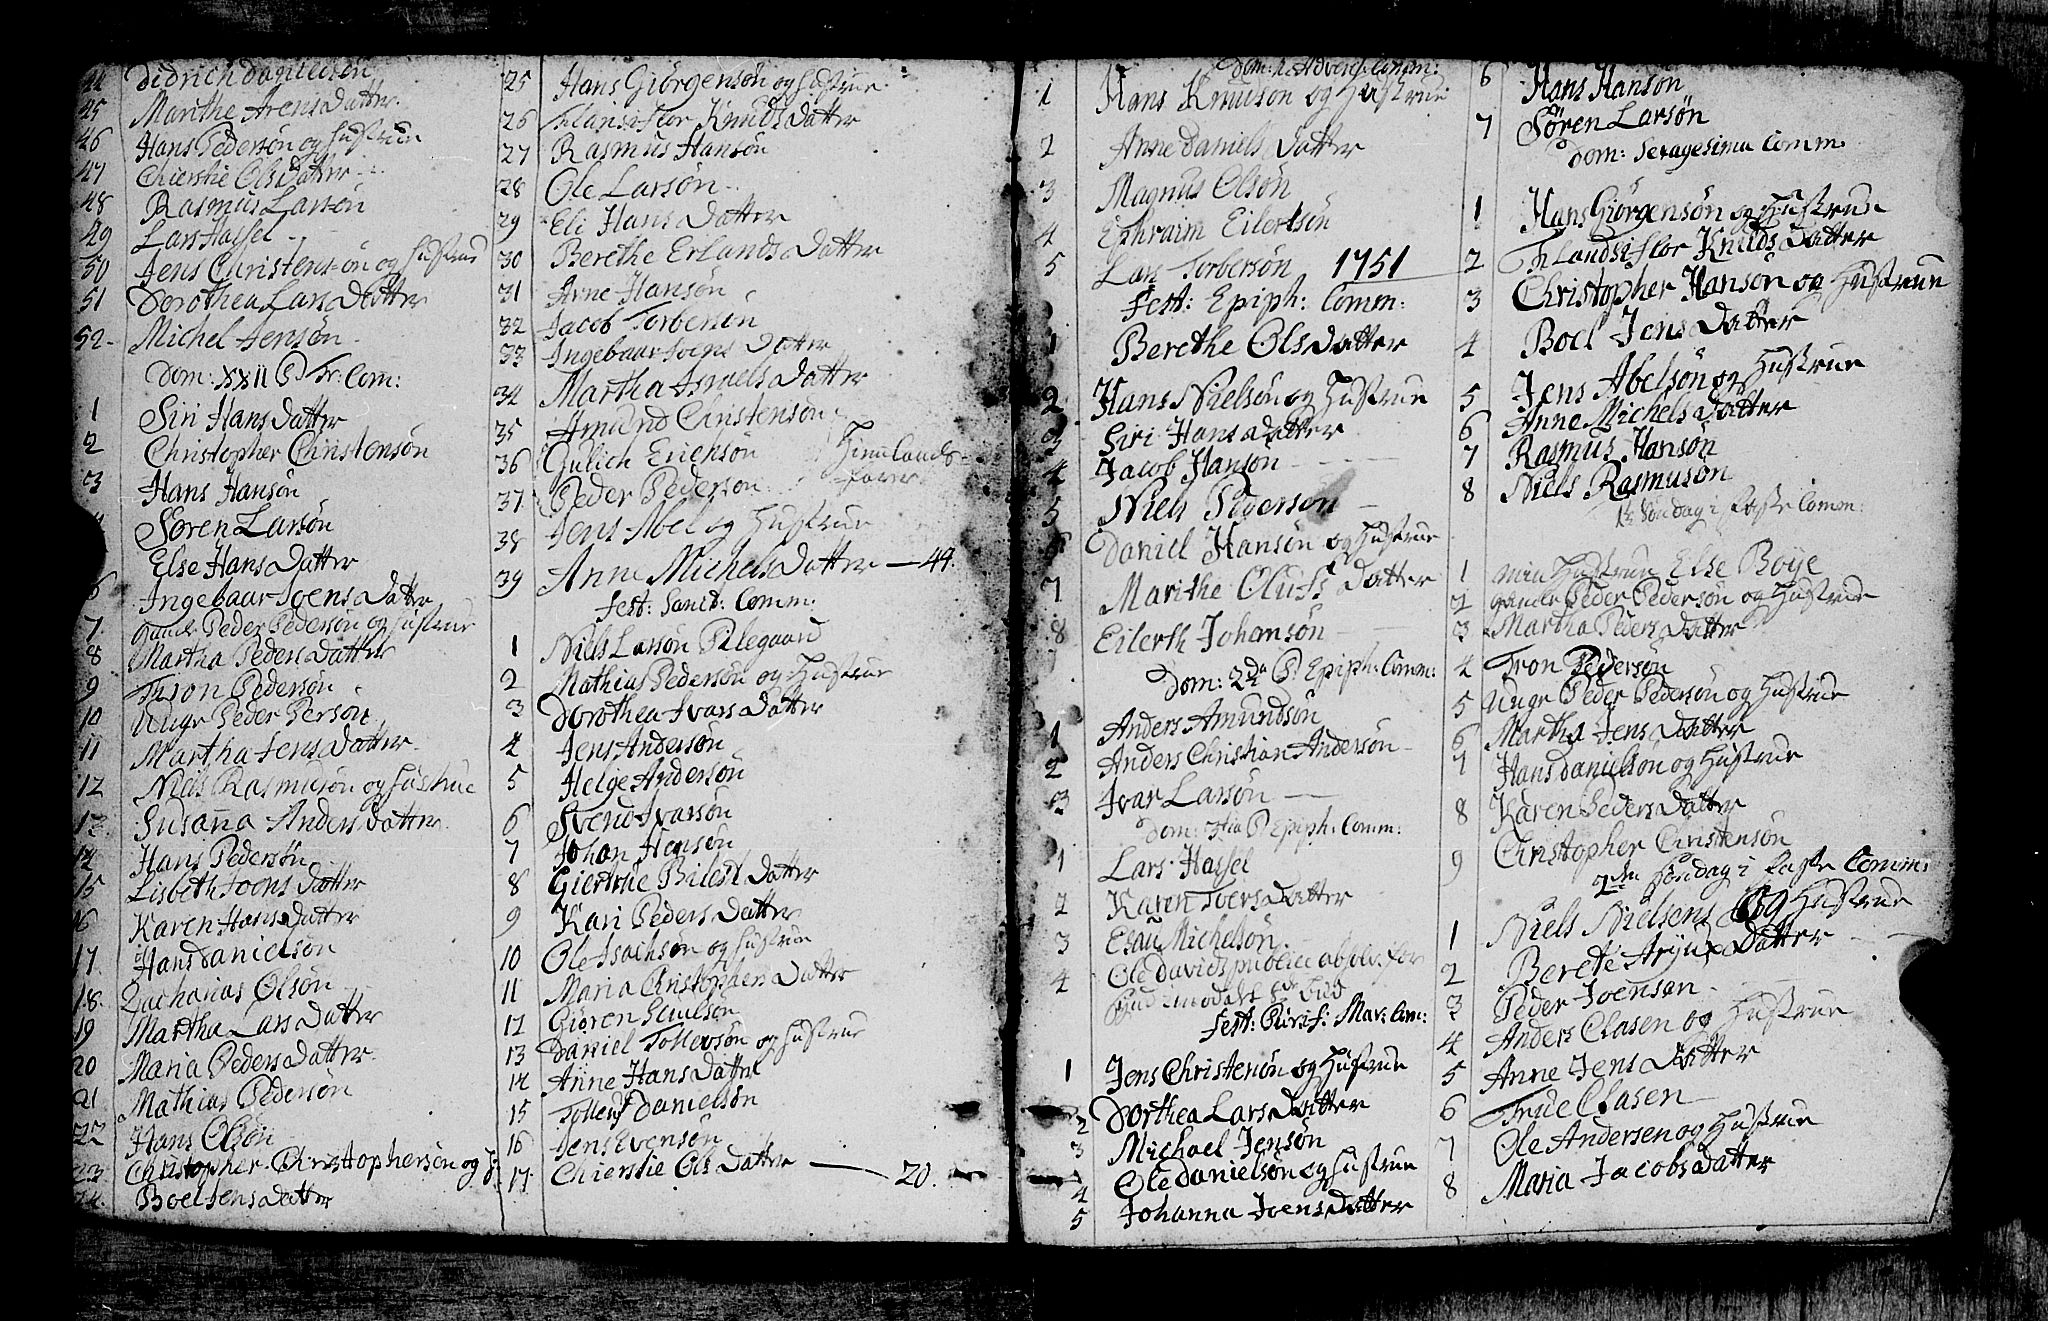 44 Didrich Danielsøn
45 Marithe ArensDatter
46 Hans Pedersøn og Hustrue
47 Chierstie OlsDatter
48 Rasmus Larsøn
49 Lars Hassel
50 Jens Christensøn og Hustrue
51 Dorothea LarsDatter
52 Michel Jensøn
Dom: XXII P. Tr: Com:
1 Siri HansDatter
2 Christopher Christensøn
3 Hans Hansøn
Søren Larsøn
Else HansDatter
6 Ingebaar JoensDatter
7 gamle Peder Pedersøn og Hustrue
8 Martha PedersDatter
9 Tron Pedersøn
10 Unge Peder Persøn
11 Martha JensDatter
12 Niels Rasmusøn og Hustrue
13 Susanna AndersDatter
14 Hans Pedersøn
15 Lisbeth JoensDatter
16 Karen HansDatter
17 Hans Danielsøn
18 Zacharias Olsøn
19 Martha LarsDatter
20 Maria PedersDatter
21 Mathias Pedersøn
22 Hans Olsøn
23 Christopher Christophersøn og H:
24 Boel JensDatter
25 Hans Giörgensøn og Hustrue
26 KnudsDatter
27 Rasmus Hansøn
28 Ole Larsøn
29 Eli HansDatter
30 Berethe ErlandsDatter
31 Arne Hansøn
32 Jacob Torbersøn
33 Ingebaar JoensDatter
34 Martha IsraelsDatter
35 Amund Christensøn
36 Gulich Erichsøn
37 Peder Pedersøn
38 Jens Abel og Hustrue
39 Anne MichelsDatter — 44.
Fest: Sanct: Comm:
1 Niels Larsøn Pilegaard
2 Mathias Pedersøn og Hustrue
3 Dorothea IvarsDatter
4 Jens Andersøn
5 Helge Andersøn
6 Svend Ivarsøn
7 Johan Hansøn
8 Giertrue Datter
9 Kari PedersDatter
10 Ole Isachsøn og Hustrue
11 Maria ChristophersDatter
12 Giøren
13 Daniel Tollevsøn og Hustrue
14 Anne HansDatter
15 Tollevf Danielsøn
16 Jens Evensøn
17 Chierstie OlsDatter — 20.
Dom: 1. Advent: Comm:
1 Hans Knudsøn og Hustrue
2 Anne DanielsDatter
3 Magnus Olsøn
4 Ephraim Eilertsøn
5 Lars Torbersøn
1751
Fest: Epiph: Comm:
1 Berethe OlsDatter
2 Hans Nielsøn og Hustrue
3 Siri HansDatter
4 Jacob Hansøn
5 Niels Pedersøn
6 Daniel Hansøn og Hustrue
7 Marithe OlufsDatter
8 Eilerth Johansøn
Dom: 2da P. Epiph: Comm:
1 Anders Amundsøn
2 Anders Christian Andersøn
3 Ivar Larsøn
Dom: 3tia P. Epiph: Comm:
1 Lars Hassel
2 Karen IversDatter
3 Esau Michelsøn
4 Ole Davids publice absolv: for
Fest: Purif: Mar: Com:
1 Jens Christensøn og Hustrue
2 Dorthea LarsDatter
3 Michael Jensøn
4 Ole Danielsøn og Hustrue
5 Johanna JoensDatter
6 Hans Hansøn
7 Søren Larsøn
Dom: Sexagesima Comm:
1 Hans Giörgensøn og Hustrue
2 KnudsDatter
3 Christopher Hansøn og Hustrue
4 Boel JensDatter
5 Jens Abelsøn og Hustrue
6 Anne MichelsDatter
7 Rasmus Hansøn
8 Niels Rasmusøn
1te Søndag i Faste Comm:
1 min Hustrue Else Boÿe
2 gamle Peder Pedersøn og Hustrue
3 Martha PedersDatter
4 Tron Pedersøn
5 Unge Peder Pedersøn og Hustrue
6 Martha JensDatter
7 Hans Danielsøn og Hustrue
8 Karen PedersDatter
9 Christopher Christensøn
2den Søndag i Faste Comm:
1 Niels Nielsens og Hustrue
2 Berete Datter
3 Peder Joensen
4 Anders Clasen og Hustrue
5 Anne JensDatter
6 Clasen
7 Ole Andersen og Hustrue
8 Maria JacobsDatter